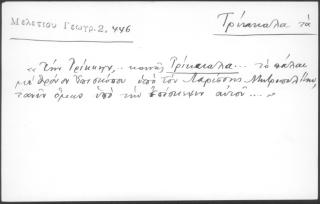 Μελετίου Γεωγρ. 2, 446
Τρίκκαλα τὰ
« Τὴν Τρίκκην, .. κοινῶς Τρίκκαλα ... τὸ πάλαι
μὲ θρόνον Ἐπισκόπου ὑπὸ τὸν Λαρίσσης Μητροπολίτην,
τανῦν ὅμως ὑπὸ τὴν ἐπίσκεψιν αὐτοῦ ... »